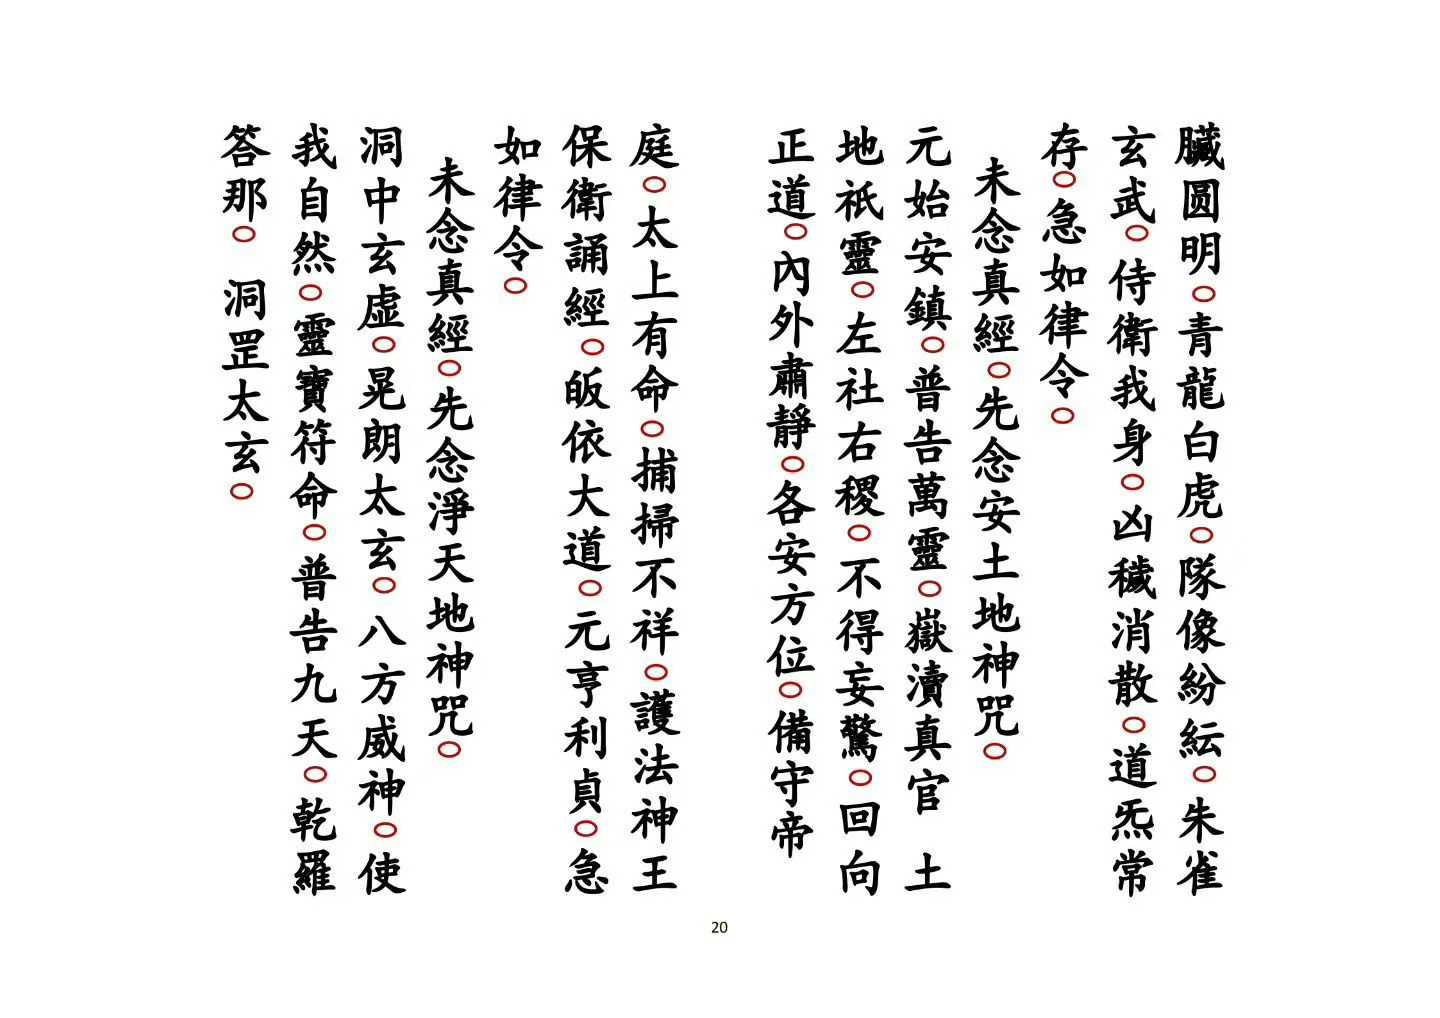 臟圆明○青龍白虎○隊像紛紜○朱雀
玄武○侍衛我身○凶穢消散○道炁常
存○急如律令○
未念真經○先念安土地神咒○
元始安鎮○普告萬靈○嶽瀆真官　土
地祇靈○左社右稷○不得妄驚○回向
正道○內外肅靜○各安方位○備守帝
庭○太上有命○捕掃不祥○護法神王
保衛誦經○皈依大道○元亨利貞○急
如律令○
未念真經○先念淨天地神咒○
洞中玄虛○晃朗太玄○八方威神○使
我自然○靈寶符命○普告九天○乾羅
答那○　洞罡太玄○
20